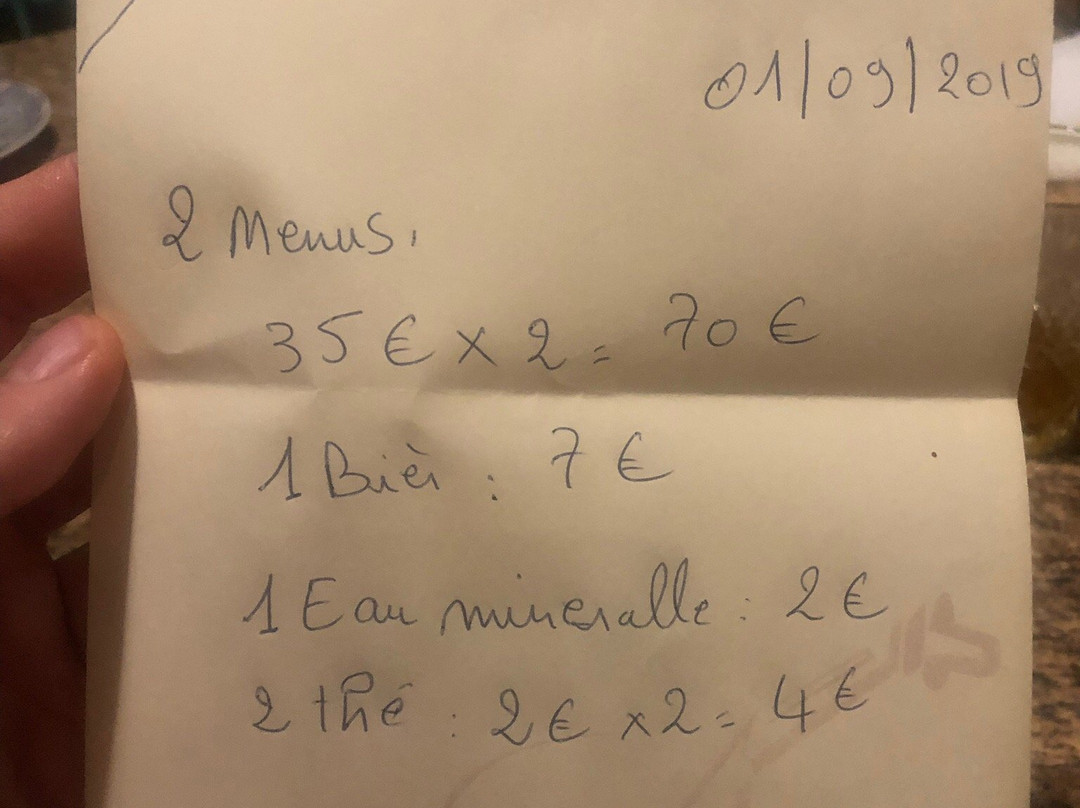 01/09/2019
2 Menus.
35 € x 2 = 70 €
1 Bièr : 7 €
1 Eau mineralle : 2 €
2 thé : 2 € x 2 = 4 €